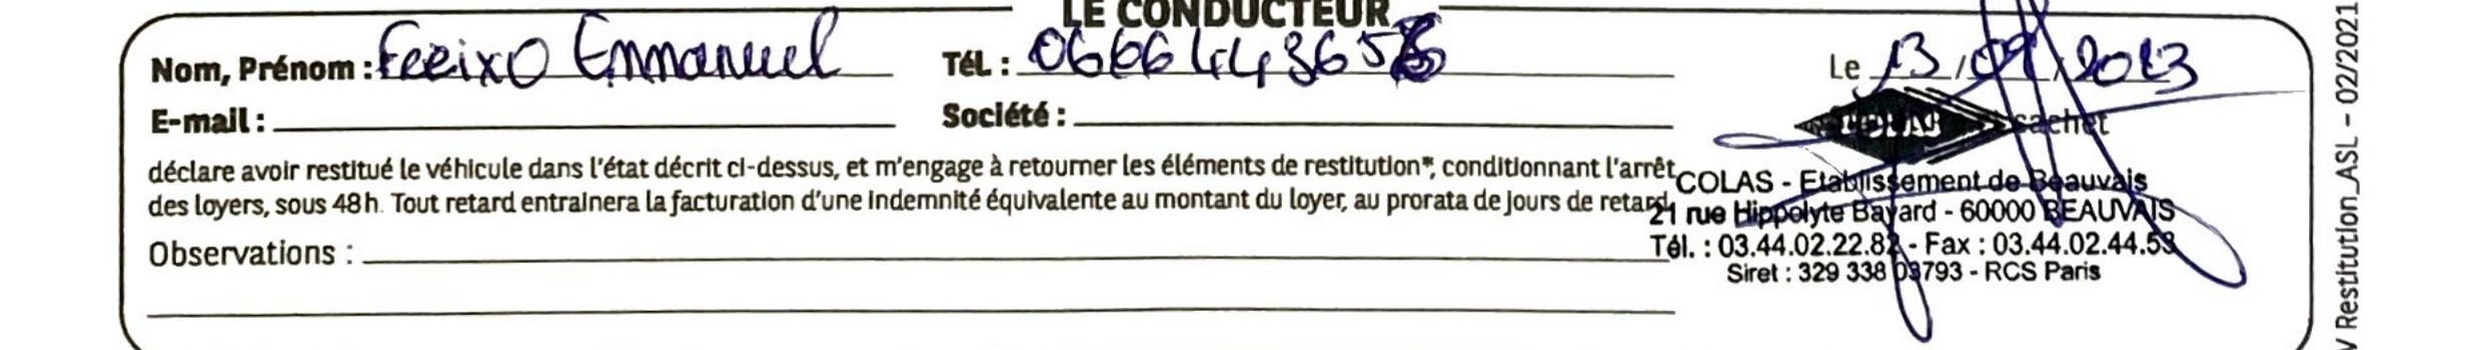 LE CONDUCTEUR
Nom, Prénom : Feeixo Emmanuel Tél. : 0666443656 Le 13/09/2023
E-mail : Société :
cachet
déclare avoir restitué le véhicule dans l'état décrit ci-dessus, et m'engage à retourner les éléments de restitution*, conditionnant l'arrêt
des loyers, sous 48h. Tout retard entrainera la facturation d'une indemnité équivalente au montant du loyer, au prorata de jours de retard.
Observations :
COLAS - Etablissement de Beauvais
21 rue Hippolyte Bayard - 60000 BEAUVAIS
Tél. : 03.44.02.22.82 - Fax : 03.44.02.44.53
Siret : 329 338 03793 - RCS Paris
V Restitution_ASL - 02/2021